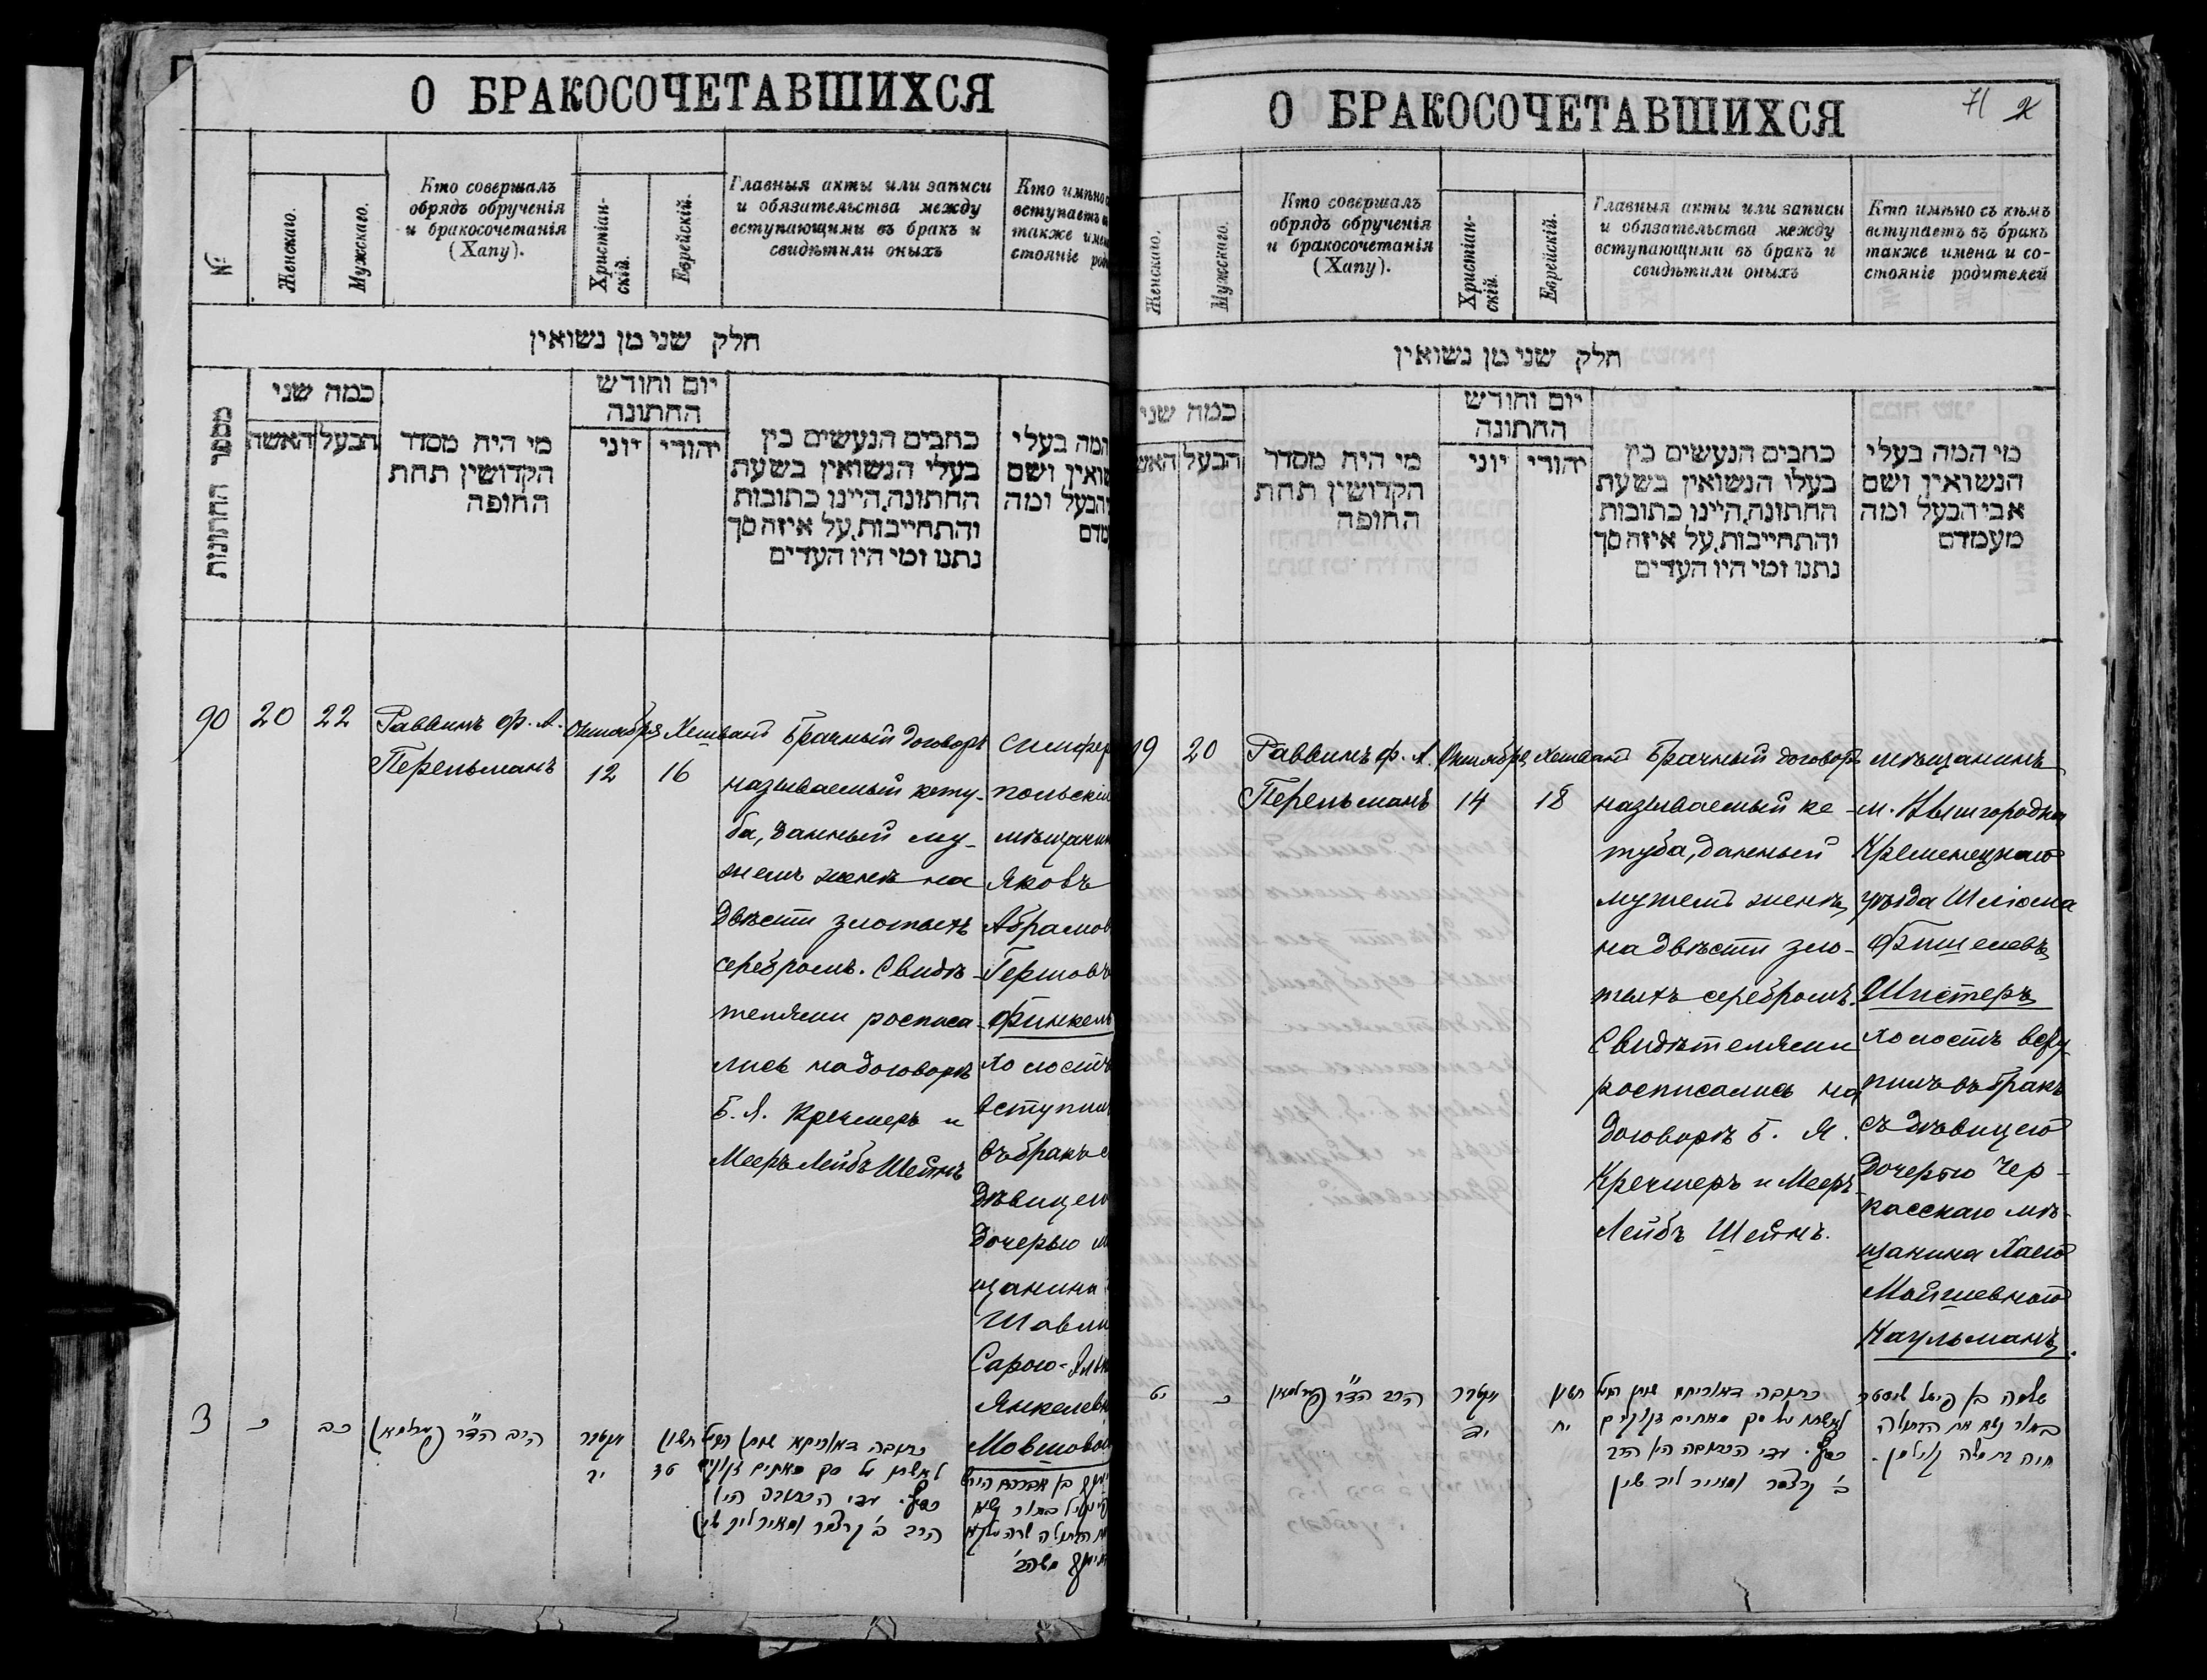 О БРАКОСОЧЕТАВШИХСЯ
№
Женскаго.
Мужскаго.
Кто совершалъ
обрядъ обрученія
и бракосочетанія
(Хапу).
Христіан-
скій.
Еврейскій.
Главныя акты или записи
и обязательства между
вступающими въ бракъ и
свидѣтили оныхъ
Кто имѣно
вступаетъ
также имен
стояніе род
חלק שני מן נשואין
מספר החתונות
כמה שני
האשה
הבעל
מי היה מסדר
הקדושין תחת
החופה
יום וחודש
החתונה
יוני
יהודי
כתבים הנעשים בין
בעלי הנשואין בשעת
החתונה,היינו כתובות
והתחייבות,על איזה סך
נתנו ומי היו העדים
המה בעלי
ואין, ושם
הבעל ומה
מדם
90
20
22
Раввинъ Ф. А.
Перельманъ
Октября
12
Хешванъ
16
Брачный договоръ
называемый кету-
ба, данный му-
жемъ женѣ на
двѣсти злотыхъ
серебромъ. Свидѣ-
телями росписа-
лись на договорѣ
Б. Я. Кречмеръ и
Мееръ Лейбъ Шейнъ
Симфер
польскій
мѣщанин
Яковъ
Абрамов
Гершовъ
Финкель
холостъ
вступил
въ бракъ с
дѣвицею
дочерью м
щанина
Шавли
Сарою-
Янкелевн
Мовшово
כ
כב
הרב הד"ר פערלמאן
אקטבר
יב
חשון
טז
כתובה דאורייתא שנתן הבעל
לאשתו על סך מאתים זקוקים
כסף. עדי הכתובה היו
הרב ב' קרצמר ומאיר ליב שיין
О БРАКОСОЧЕТАВШИХСЯ
71
Женскаго.
Мужскаго.
Кто совершалъ
обрядъ обрученія
и бракосочетанія
(Хапу).
Христіан-
скій.
Еврейскій.
Главныя акты или записи
и обязательства между
вступающими въ бракъ и
свидѣтили оныхъ
Кто имѣно съ кѣмъ
вступаетъ въ бракъ
также имена и со-
стояніе родителей
חלק שני מן נשואין
כמה שני
האש
הבעל
מי היה מסדר
הקדושין תחת
החופה
יום וחודש
החתונה
יוני
יהודי
כתבים הנעשים בין
בעלו הנשואין בשעת
החתונה,היינו כתובות
והתחייבות,על איזה סך
נתנו ומי היו העדים
מי המה בעלי
הנשואין, ושם
אבי הבעל ומה
מעמדם
19
20
Раввинъ Ф. А.
Перельманъ
Октября
14
Хешванъ
18
Брачный договоръ
называемый ке-
туба, данный
мужемъ женѣ
на двѣсти зло-
тыхъ серебромъ.
Свидѣтелями
росписались на
договорѣ Б. Я.
Кречмеръ и Мееръ-
Лейбъ Шейнъ.
мѣщанинъ
м. Вышгородка
Кременецкаго
уѣзда Шліома
Фишелевъ
Шистеръ
холостъ всту
пилъ въ бракъ
съ дѣвицею
дочерью Чер-
касскаго мѣ-
щанина Хаею
Мойшевною
Каульманъ.
יט
כ
הרב הד"ר פערלמאן
אקטבר
יד
חשון
יח
כתובה דאורייתא שנתן הבעל
לאשתו על סך מאתים זקוקים
כסף. עדי הכתובה היו הרב
ב' קרצמר ומאיר ליב שיין
שלמה בן פישל שיסטר
בחור נשא את הבתולה
חיה בת משה קוילמן.